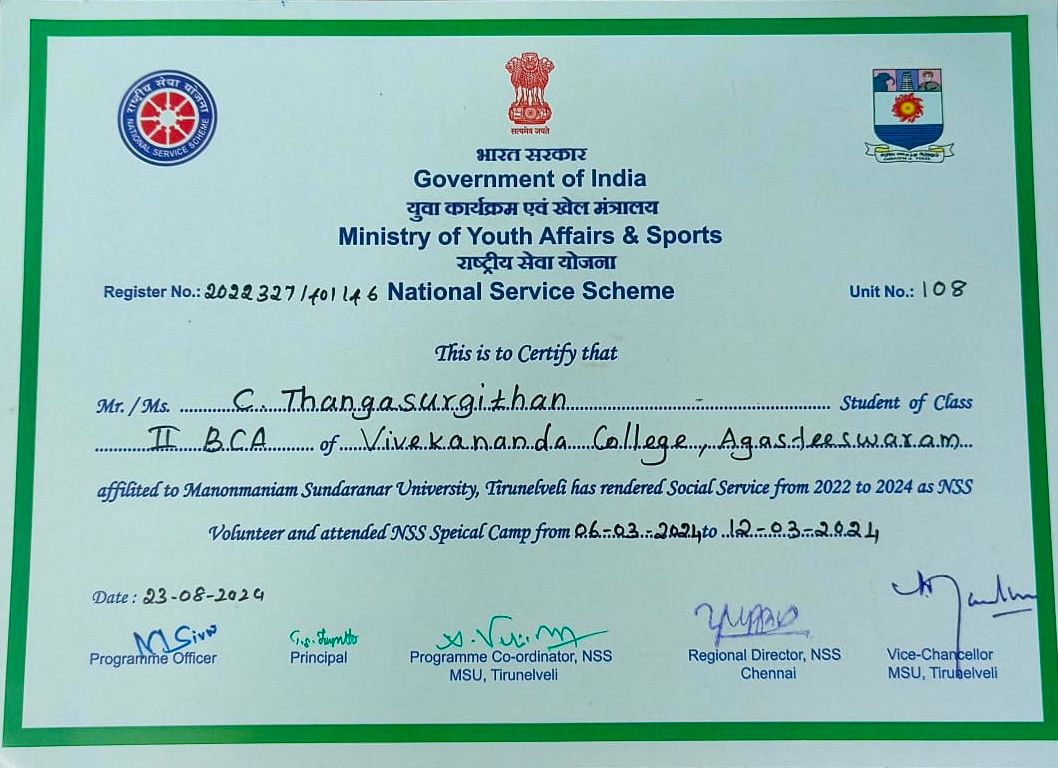 राष्ट्रीय सेवा योजना
NATIONAL SERVICE SCHEME
सत्यमेव जयते
भारत सरकार
Government of India
युवा कार्यक्रम एवं खेल मंत्रालय
Ministry of Youth Affairs & Sports
राष्ट्रीय सेवा योजना
Register No.: 2022327/401146 National Service Scheme Unit No.: 108
This is to Certify that
Mr. / Ms. C. Thangasurgithan Student of Class
II BCA of Vivekananda College, Agasteeswaram
affilited to Manonmaniam Sundaranar University, Tirunelveli has rendered Social Service from 2022 to 2024 as NSS
Volunteer and attended NSS Speical Camp from 06-03-2024 to 12-03-2024
Date : 23-08-2024
Programme Officer Principal Programme Co-ordinator, NSS Regional Director, NSS Vice-Chancellor
MSU, Tirunelveli Chennai MSU, Tirunelveli